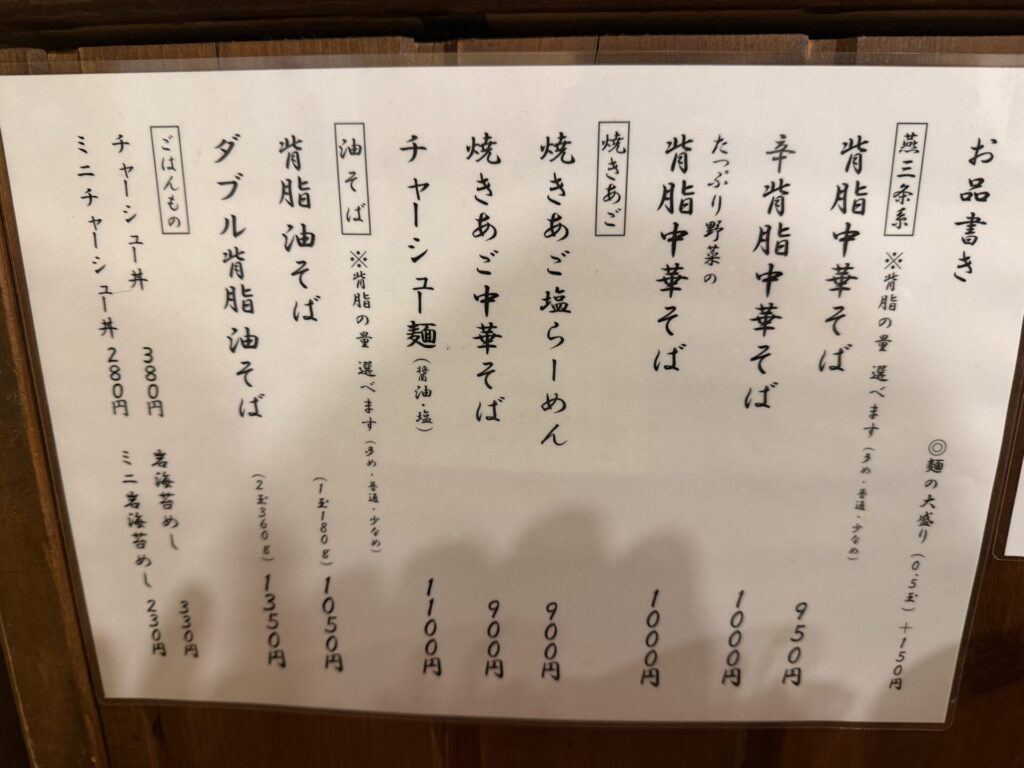 お品書き
◎麺の大盛り(0.5玉)+150円
燕三条系 ※背脂の量 選べます(多め・普通・少なめ)
背脂中華そば 950円
辛背脂中華そば 1000円
たっぷり野菜の
背脂中華そば 1000円
焼きあご
焼きあご塩らーめん 900円
焼きあご中華そば 900円
チャーシュー麺(醤油・塩) 1100円
油そば ※背脂の量 選べます(多め・普通・少なめ)
背脂油そば (1玉180g) 1050円
ダブル背脂油そば (2玉360g) 1350円
ごはんもの
チャーシュー丼 380円 岩海苔めし 330円
ミニチャーシュー丼 280円 ミニ岩海苔めし 230円